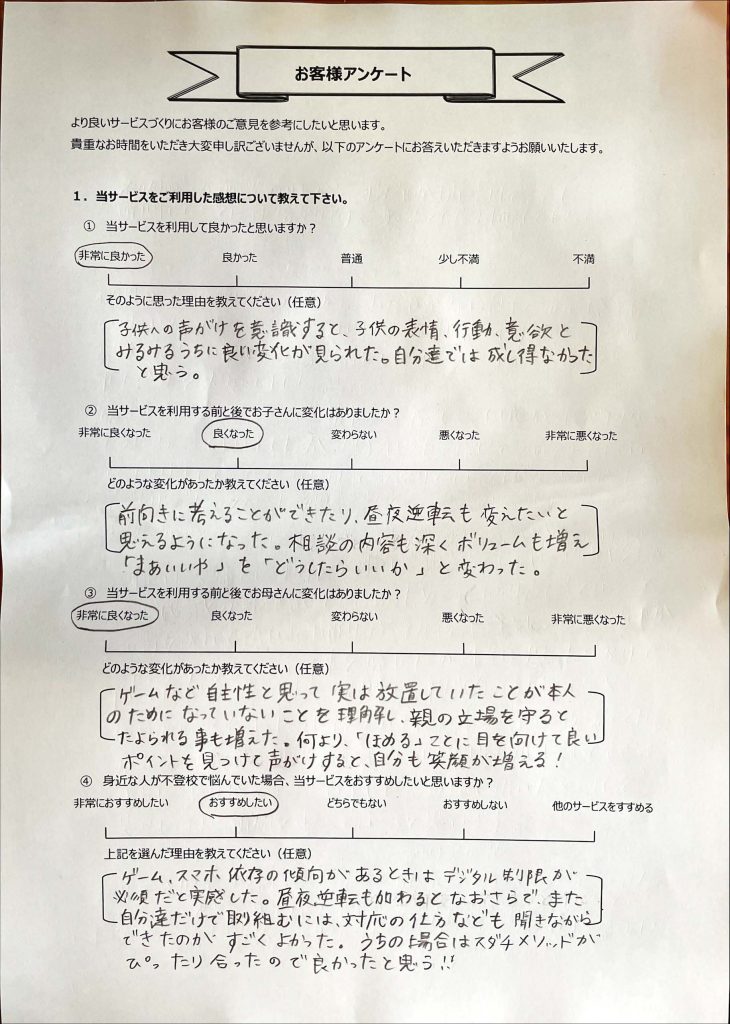 お客様アンケート
より良いサービスづくりにお客様のご意見を参考にしたいと思います。
貴重なお時間をいただき大変申し訳ございませんが、以下のアンケートにお答えいただきますようお願いいたします。
1．当サービスをご利用した感想について教えて下さい。
① 当サービスを利用して良かったと思いますか？
非常に良かった 良かった 普通 少し不満 不満
そのように思った理由を教えてください（任意）
子供への声がけを意識すると、子供の表情、行動、意欲と
みるみるうちに良い変化が見られた。自分達では成し得なかった
と思う。
② 当サービスを利用する前と後でお子さんに変化はありましたか？
非常に良くなった 良くなった 変わらない 悪くなった 非常に悪くなった
どのような変化があったか教えてください（任意）
前向きに考えることができたり、昼夜逆転も変えたいと
思えるようになった。相談の内容も深くボリュームも増え
「まぁいいや」を「どうしたらいいか」と変わった。
③ 当サービスを利用する前と後でお母さんに変化はありましたか？
非常に良くなった 良くなった 変わらない 悪くなった 非常に悪くなった
どのような変化があったか教えてください（任意）
ゲームなど自主性と思って実は放置していたことが本人
のためになっていないことを理解し、親の立場を守ると
たよられる事も増えた。何より、「ほめる」ことに目を向けて良い
ポイントを見つけて声がけすると、自分も笑顔が増える！
④ 身近な人が不登校で悩んでいた場合、当サービスをおすすめしたいと思いますか？
非常におすすめしたい おすすめしたい どちらでもない おすすめしない 他のサービスをすすめる
上記を選んだ理由を教えてください（任意）
ゲーム、スマホ依存の傾向があるときはデジタル制限が
必須だと実感した。昼夜逆転も加わるとなおさらで、また
自分達だけで取組むには、対応の仕方なども聞きながら
できたのがすごくよかった。うちの場合はスダチメソッドが
ぴったり合ったので良かったと思う!!